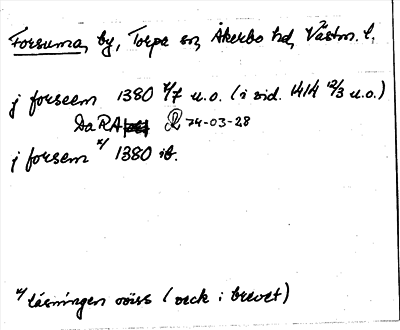 Forsuma, by, Torpa sn, Åkerbo hd, Västm. l.
j forseem 1380 4/7 u.o. (i vid. 1414 12/3 u.o.)
Da RA 74-03-28
j forsem x/ 1380 ib.
x/ läsningen oviss (veck i brevet)